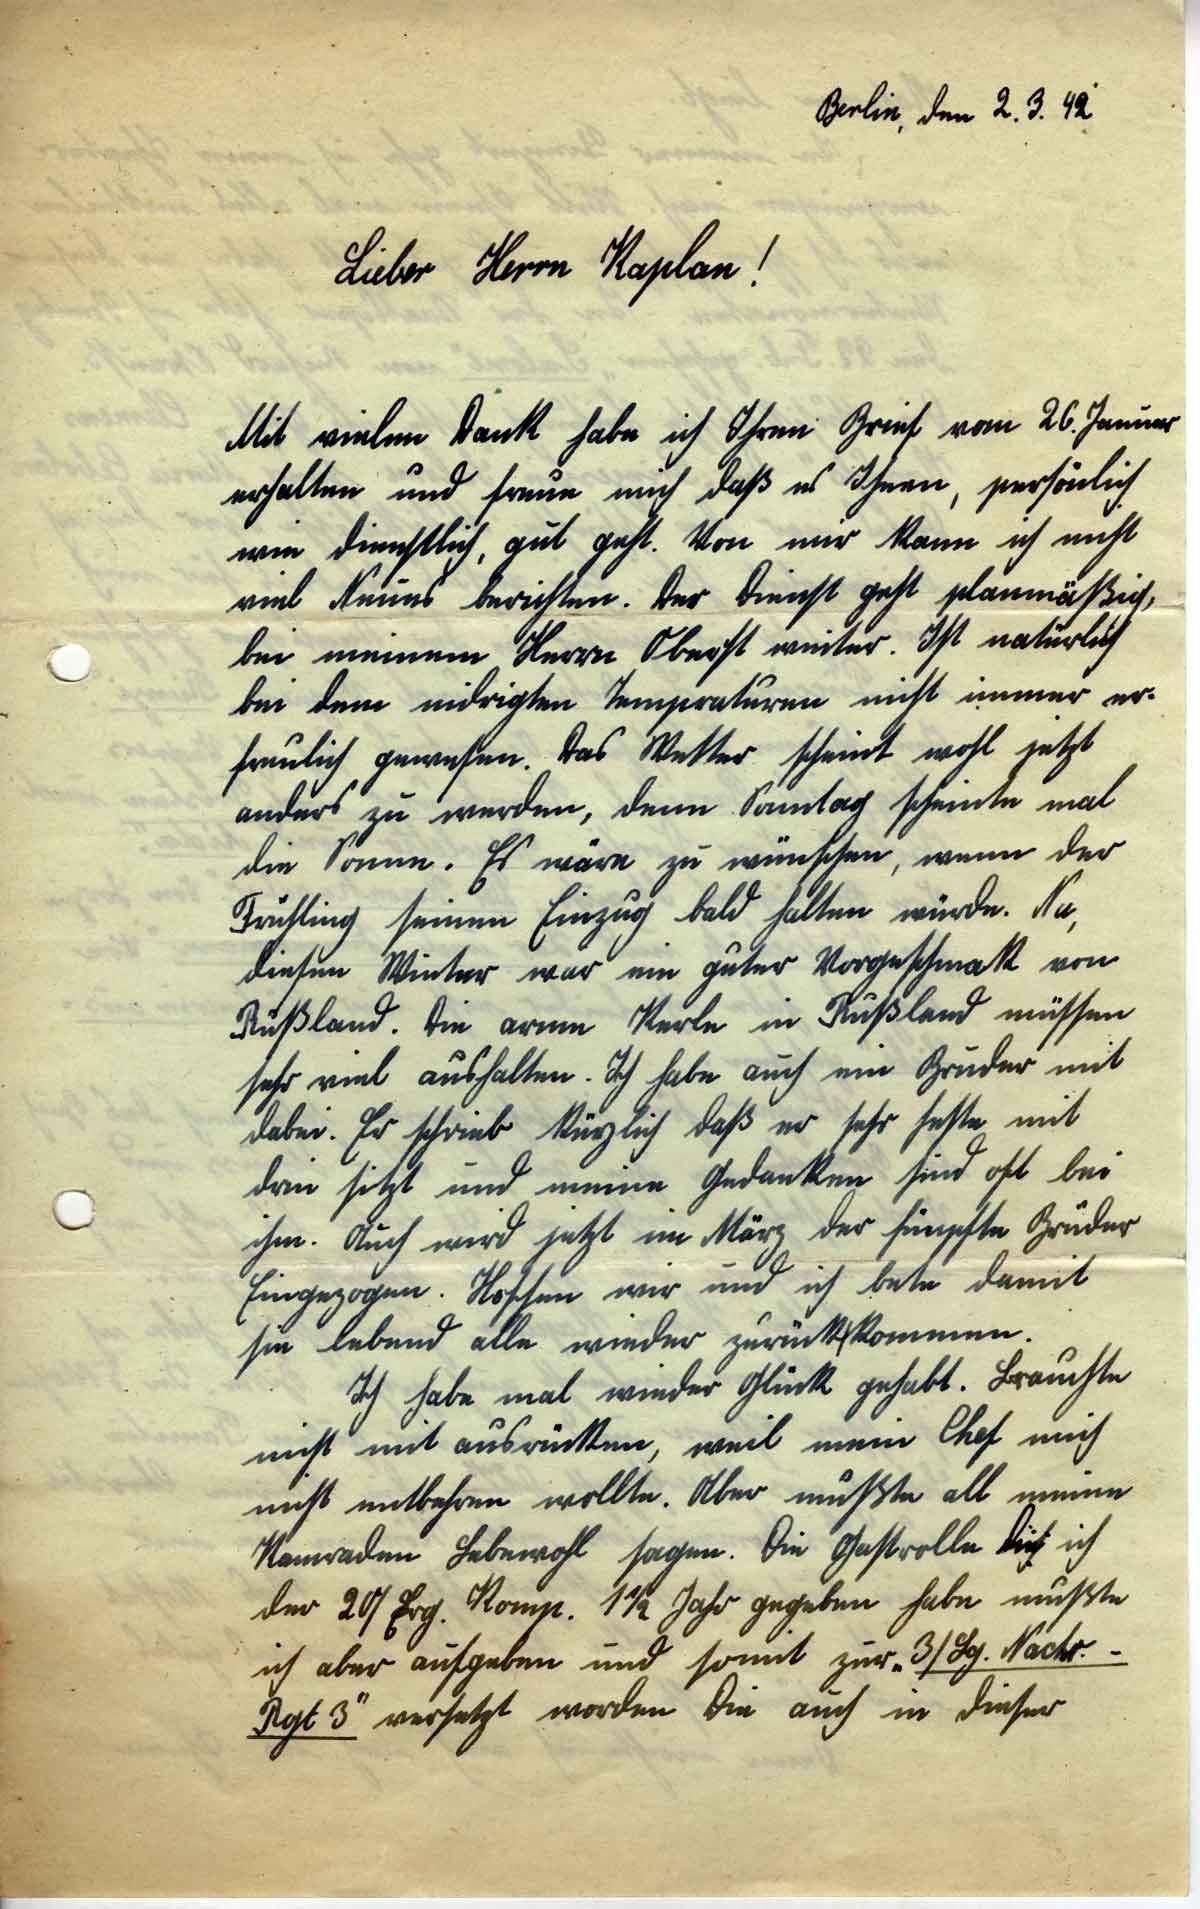 Berlin, den 2.3.42
Lieber Herrn Kaplan!
Mit vielen Dank habe ich Ihren Brief vom 26. Januar
erhalten und freue mich daß es Ihnen, persönlich
wie dienstlich, gut geht. Von mir kann ich nicht
viel Neues berichten. Der Dienst geht planmäßig,
bei meinem Herrn Oberst weiter. Ist natürlich
bei dem nidrigten Tempraturen nicht immer er-
freulich gewesen. Das Wetter scheint wohl jetzt
anders zu werden, denn Sonntag scheinte mal
die Sonne. Es wäre zu wünschen, wenn der
Frühling seinen Einzug bald halten würde. Na,
diesen Winter war ein guter Vorgeschmak von
Rußland. Die arme Kerle in Rußland müssen
sehr viel aushalten. Ich habe auch ein Bruder mit
dabei. Er schrieb kürzlich daß er sehr feste mit
drin sitzt und meine Gedanken sind oft bei
ihm. Auch wird jetzt im März der fünfte Brüder
Eingezogen. Hoffen wir und ich bete damit
sie lebend alle wieder zurück kommen.
Ich habe mal wieder Glück gehabt. Brauchte
nicht mit ausrücken, weil mein Chef mich
nicht entbehren wollte. Aber mußte all meine
Kamraden Lebewohl sagen. Die Gastrolle die ich
der 20/ Erg. Komp. 1½ Jahr gegeben habe mußte
ich aber aufgeben und somit zur „3/Lg. Nachr.-
Rgt 3" versetzt worden die auch in dieser